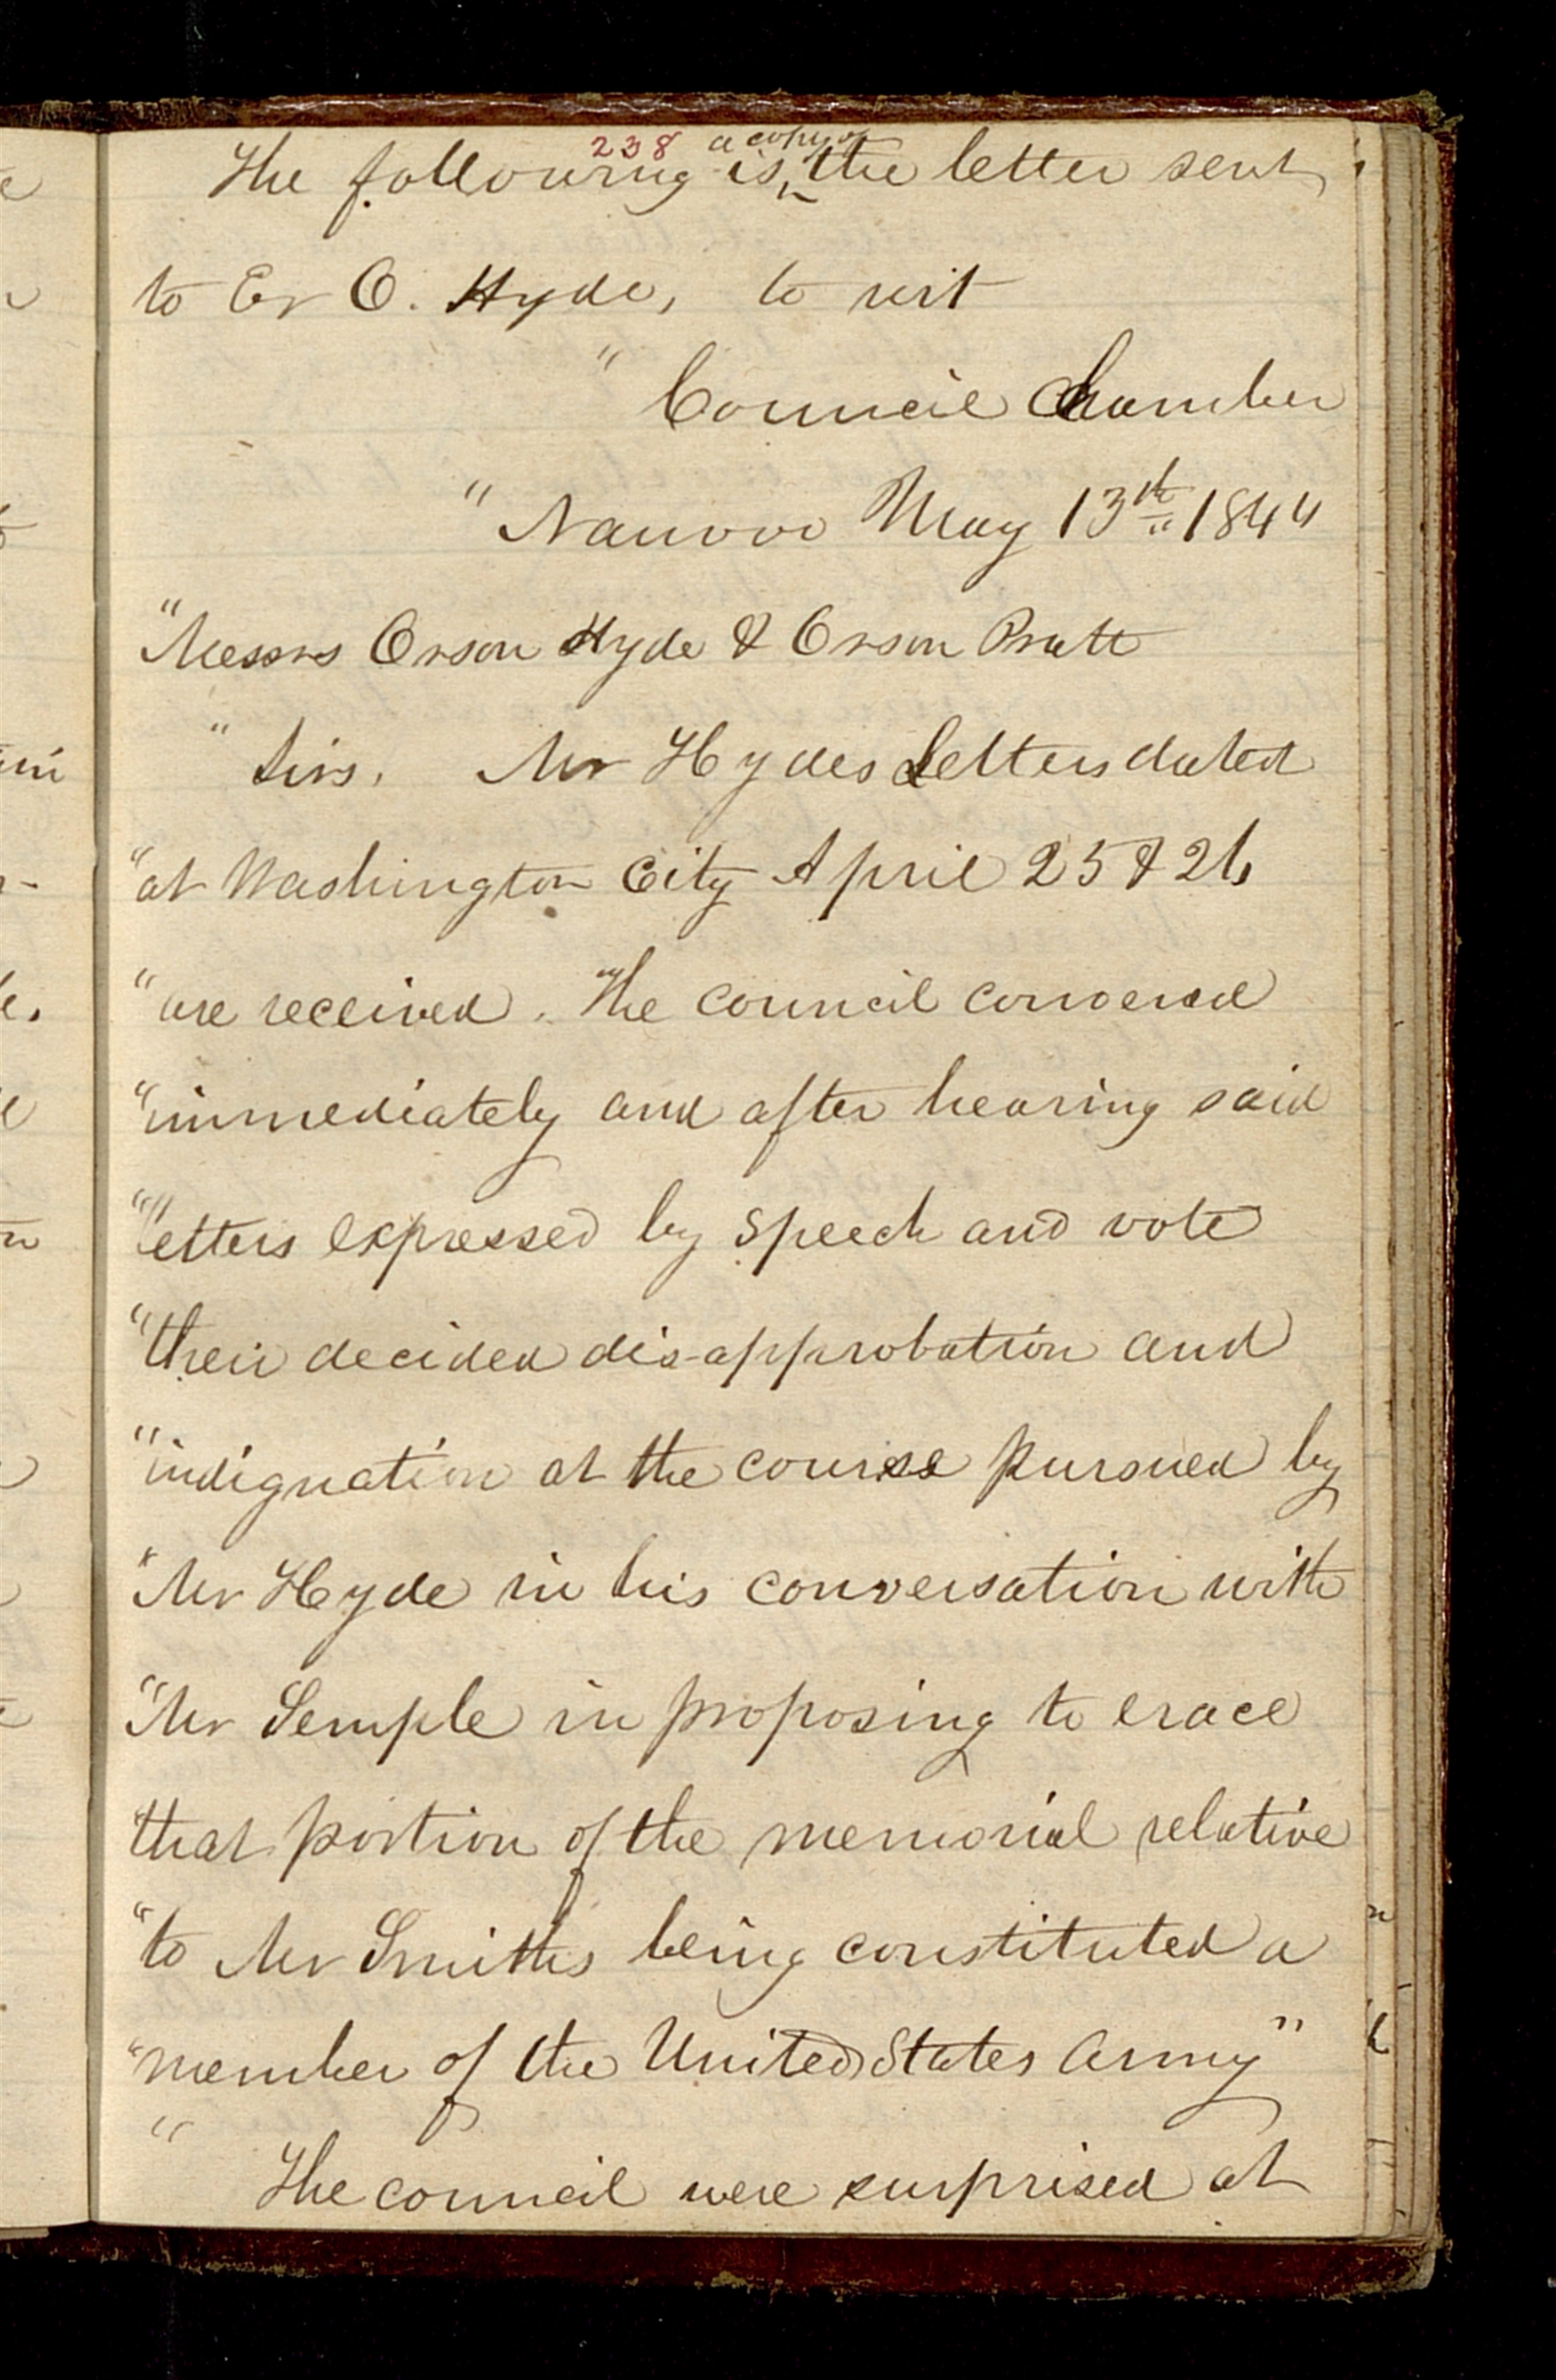 238
The following is a copy of the letter sent
to Er O. Hyde, to wit
" Council Chamber
" Nauvoo May 13th 1844
"Messrs Orson Hyde & Orson Pratt
" Sirs. Mr Hydes Letters dated
"at Washington City April 25 & 26
"are received. The council convened
"immediately and after hearing said
"letters expressed by speech and vote
"their decided dis-approbation and
"indignation at the course pursued by
"Mr Hyde in his conversation with
"Mr Semple in proposing to erace
"that portion of the memorial relative
"to Mr Smiths being constituted a
"member of the United States Army"
" The council were surprised at